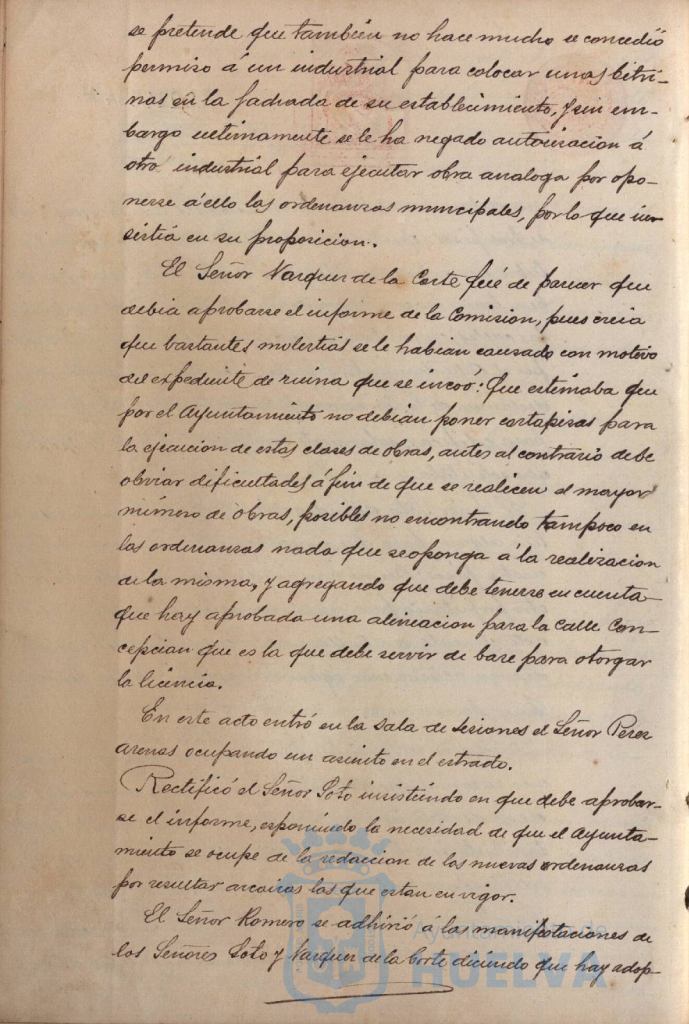 se pretende que también no hace mucho se concedió
permiso á un industrial para colocar unas bitri-
nas en la fachada de su establecimiento, y sin em-
bargo ultimamente se le ha negado autorizacion á
otro industrial para ejecutar obra analoga por opo-
nerse á ello las ordenanzas municipales, por lo que in-
sistia en su proposicion.
El Señor Vazquez de la Corte fué de parecer que
debia aprobarse el informe de la Comision, pues creia
que bastantes molestias se le habian causado con motivo
del expediente de ruina que se incoó: Que estimaba que
por el Ayuntamiento no debian poner cortapisas para
la ejecucion de estas clases de obras, antes al contrario debe
obviar dificultades á fin de que se realicen el mayor
número de obras, posibles no encontrando tampoco en
las ordenanzas nada que se oponga á la realizacion
de la misma, y agregando que debe tenerse en cuenta
que hay aprobada una alineacion para la calle Con-
cepcian que es la que debe servir de base para otorgar
la licencia.
En este acto entró en la sala de sesiones el Señor Perez
Arenas ocupando un asiento en el estrado.
Rectificó el Señor Soto insistiendo en que debe aprobar-
se el informe, esponiendo la necesidad de que el Ayunta-
miento se ocupe de la redaccion de las nuevas ordenanzas
por resultar arcaicas las que estan en vigor.
El Señor Romero se adhirió á las manifestaciones de
los Señores Soto y Vazquez de la Corte diciendo que hay adop-
HUELVA